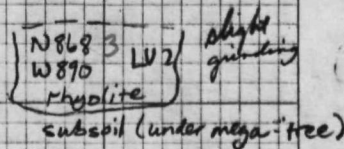 N868 3 LV2
W890
rhyolite
slight
grinding
subsoil (under mega-tree)